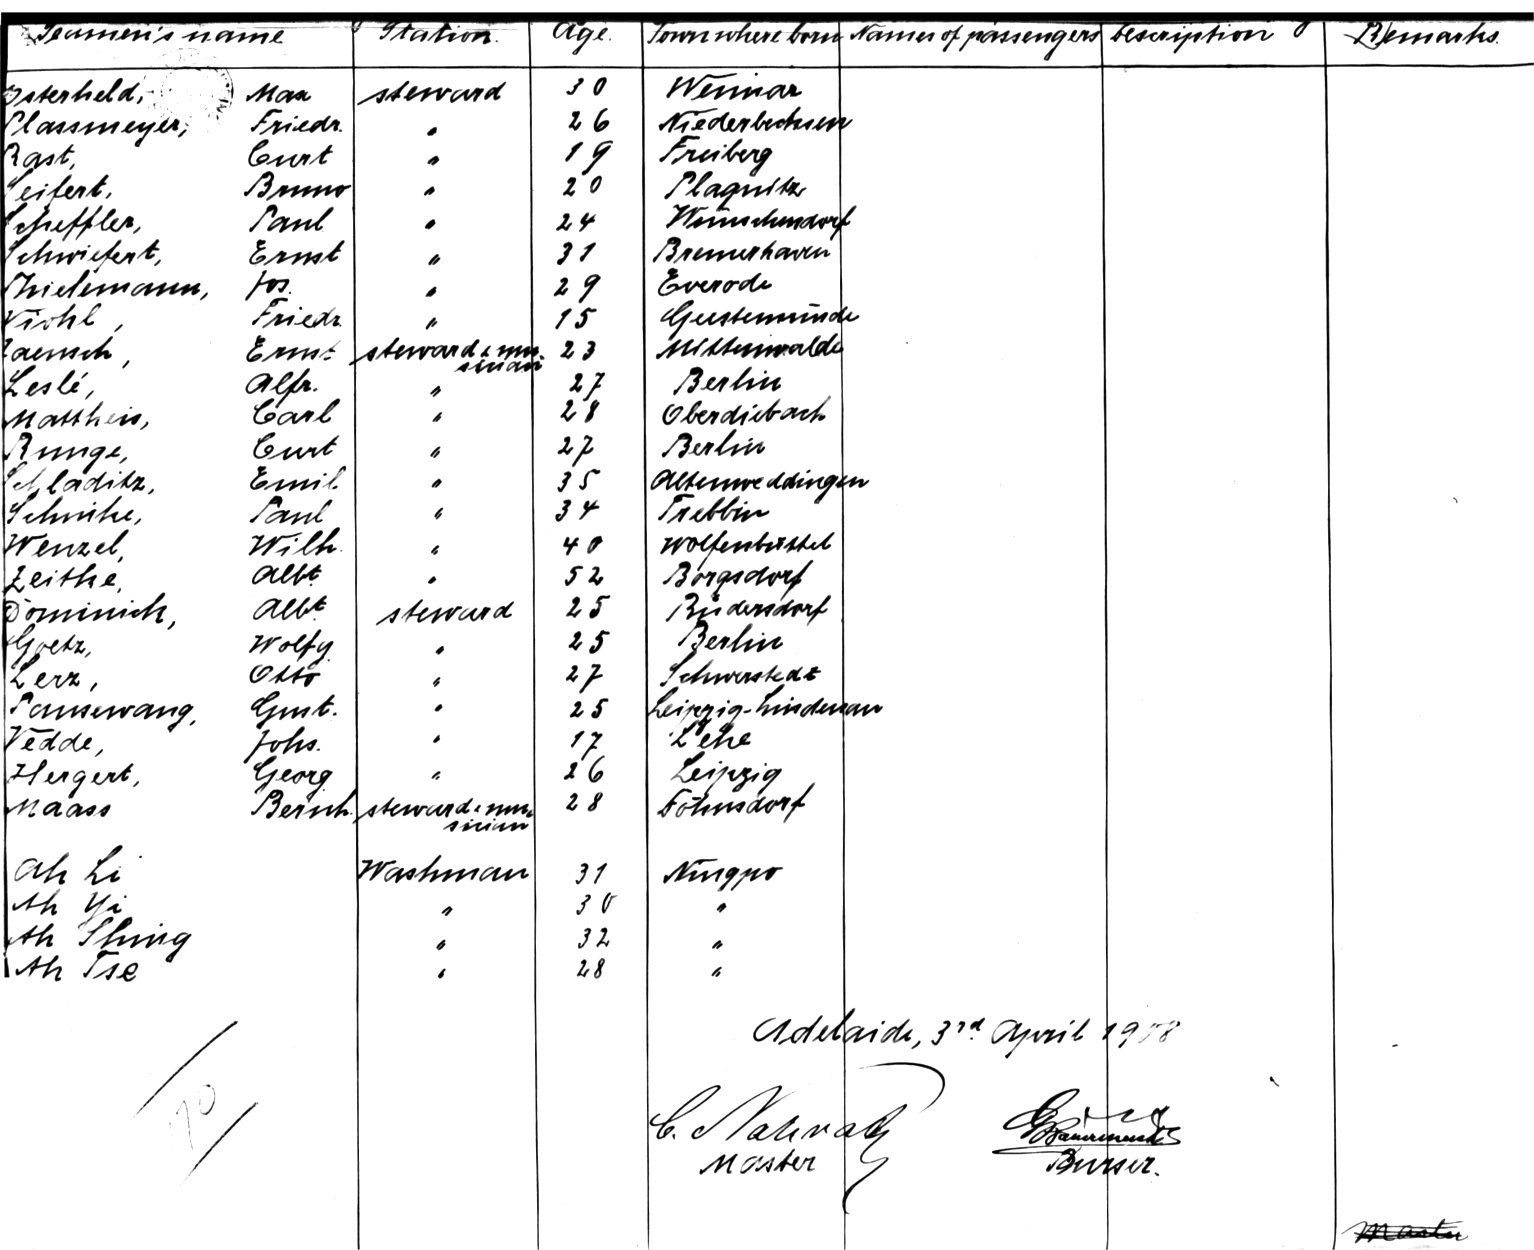 Seamen's name Station. Age. Town where born Names of passengers description Remarks.
Osterheld, Max steward 30 Weimar
Plassmeyer, Friedr. " 26 Niederbecksen
Rast, Curt " 19 Freiberg
Seifert, Bruno " 20 Plagwitz
Scheffler, Paul " 24 Wünschendorf
Schwiefert, Ernst " 31 Bremerhaven
Thielemann, Jos. " 29 Everode
Viohl, Friedr. " 15 Geestemünde
Ernst steward & mu- 23 Mittenwalde
sician
Leslé, Alfr. " 27 Berlin
Mattheis, Carl " 28 Oberdiebach
Runge, Curt " 27 Berlin
Schladitz, Emil " 35 Altenweddingen
Paul " 34 Trebbin
Wenzel, Wilh. " 40 Wolfenbüttel
Zeithe, Albt. " 52 Borgsdorf
Dominick, Albt. steward 25 Rüdersdorf
Goetz, Wolfg. " 25 Berlin
Lerz, Otto " 27 Schwerstedt
Pausewang, Gust. " 25 Leipzig-Lindenau
Vedde, Johs. " 17 Lehe
Hergert, Georg " 26 Leipzig
Maass Bernh. steward & mu- 28 Föhnsdorf
sician
Ah Li Washman 31 Ningpo
Ah Yi " 30 "
Ah Shing " 32 "
Ah Tse " 28 "
Adelaide, 3rd April 1908
C.
Master Purser.
Master